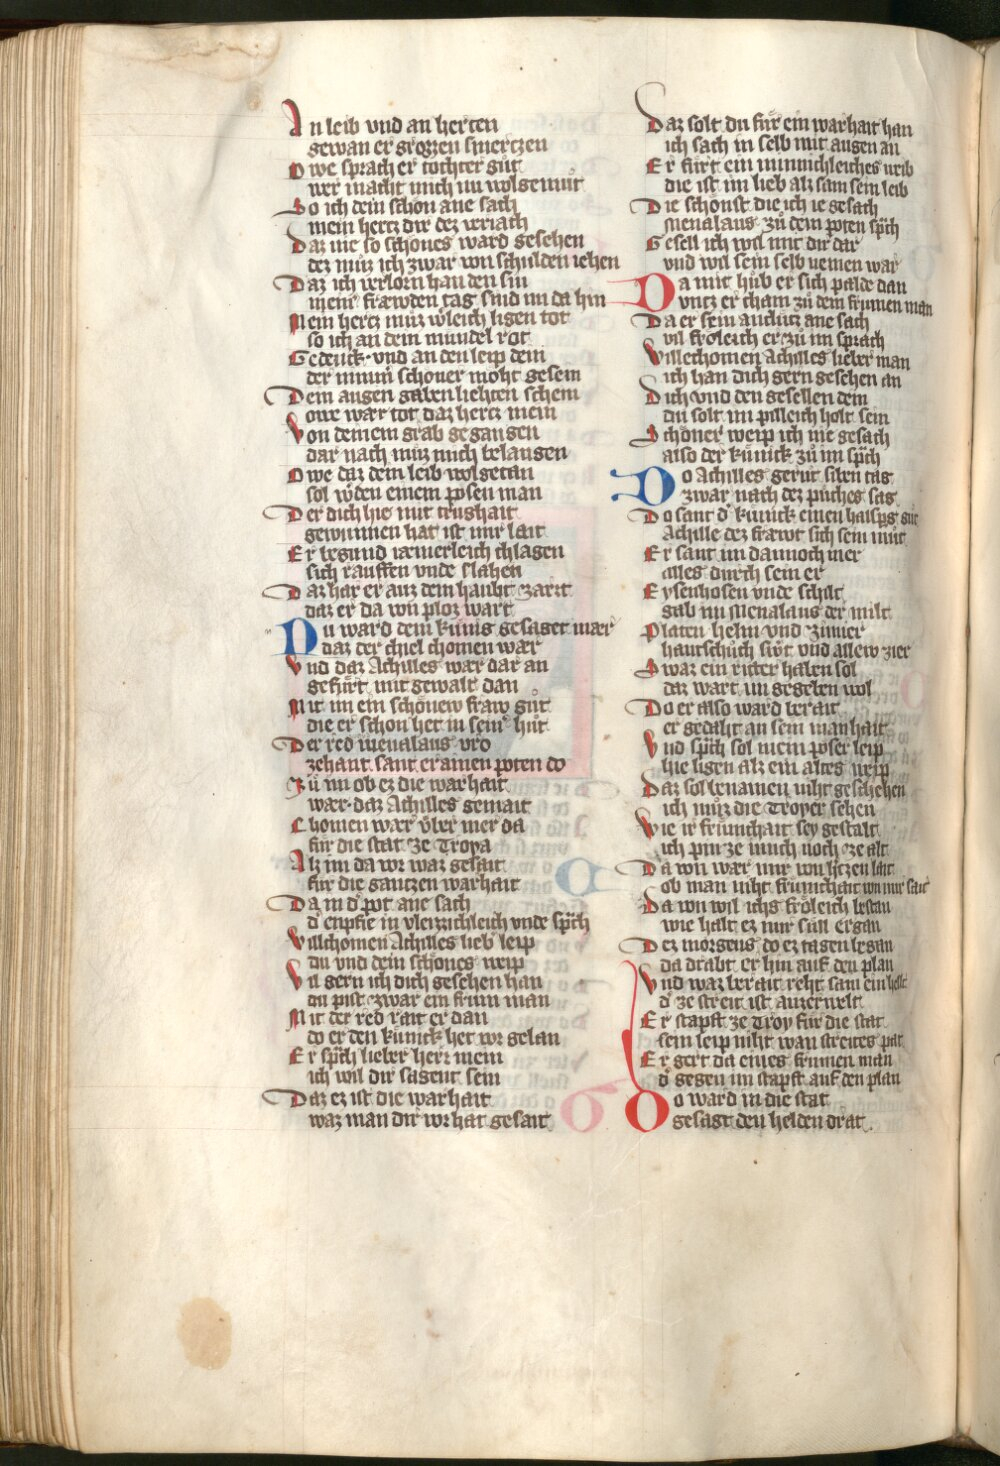 An leib vnd an hertzen
gewan er grozzen smertzen
Owe sprach er tochter gůt
wer macht mich nu wolgemůt
So ich dein schon ane sach
mein hertz dir dez veriach
Daz nie so schönes ward gesehen
dez můz ich zwar von schulden iehen
Daz ich verlorn han den sin
meiner fræwden tag sind nu da hin
Mein hertz můz ligen tot
so ich an dein mündel rot
Gedenck vnd an den leip dein
der nimmer schöner moht gesein
Dein augen gaben liehten schein
owe wær tot daz hertz mein
Von deinem grab gegangen
dar nach můz mich belangen
Owe daz dein leib wolgetan
sol einem posen man
Der dich hie mit trughait
gewunnen hat ist mir lait
Er begund iæmerleich chlagen
sich rauffen vnde slahen
Daz har er auz dem haubt zarzt
daz er da von ploz wart
Nu ward dem künig gesaget mær
daz der chiel chomen wær
Vnd daz Achilles wær dar an
gefürt mit gewalt dan
Mit im ein schönew fraw gůt
die er schon het in seiner hůt
Der red menalaus vro
zehant sant er ainen poten do
Zů im ob ez die warhait
wær daz Achilles gemait
Chomen wær vber mer da
für die stat ze Troya
Alz im da vor waz gesait
für die gantzen warhait
Da in der pot ane sach
der enpfie in vleizzichleich vnde sprach
Villchomen Achilles lieb leip
du vnd dein schönes weip
Vil gern ich dich gesehen han
du pist zwar ein frum man
Mit der red rait er dan
do er den künick het vor gelan
Er sprach lieber herr mein
ich wil dir sagent sein
Daz ez ist die warhait
waz man dir vor hat gesait
Daz solt du für ein warhait han
ich sach in selb mit augen an
Er fürt ein minnichleiches weib
die ist im lieb alz sam sein leib
Die schönst die ich ie gesach
Menalaus zů dem poten sprach
Gesell ich wil mit dir dar
vnd wil sein selb nemen war
Da mit hůb er sich palde dan
vntz er cham zů dem frumen man
Da er sein antlütz ane sach
vil frőleich er zů im sprach
Willechomen Achilles lieber man
ich han dich gern gesehen an
Dich vnd den gesellen dein
du solt im pilleich holt sein
Schöner weip ich nie gesach
also der künick zů im sprach
Do Achilles gerůt siben tag
zwar nach dez půches sag
Do sant der künick einen halsperg gůt
Achille dez fræwt sich sein můt
Er sant im dannoch mer
alles durch sein er
Eysenhosen vnde schilt
gab im Menalaus der milt
Platen helm vnd zimier
hantschůch swert vnd allew zier
Swaz ein ritter haben sol
daz wart im gegeben wol
Do er also ward berait
er gedaht an sein manhait
Vnd sprach sol mein pöser leip
hie ligen alz ein altes weip
Daz sol benamen niht geschehen
ich můz die Troyer sehen
Wie ir frümchait sey gestalt
ich pin ze iunch noch ze alt
Da von wær mir von hertzen lait
ob man niht frümchait von mir sait
Da von wil ichs frőleich bestan
wie halt ez mir süll ergan
Dez morgens do ez tagen began
da drabt er hin auf den plan
Vnd waz berait reht sam ein helt
der ze streit ist auzerwelt
Er stapft ze Troy für die stat
sein leip niht wan streites pat
Er gert da eines frumen man
der gegen im stapft auf den plan
Do ward in die stat
gesagt den helden drat